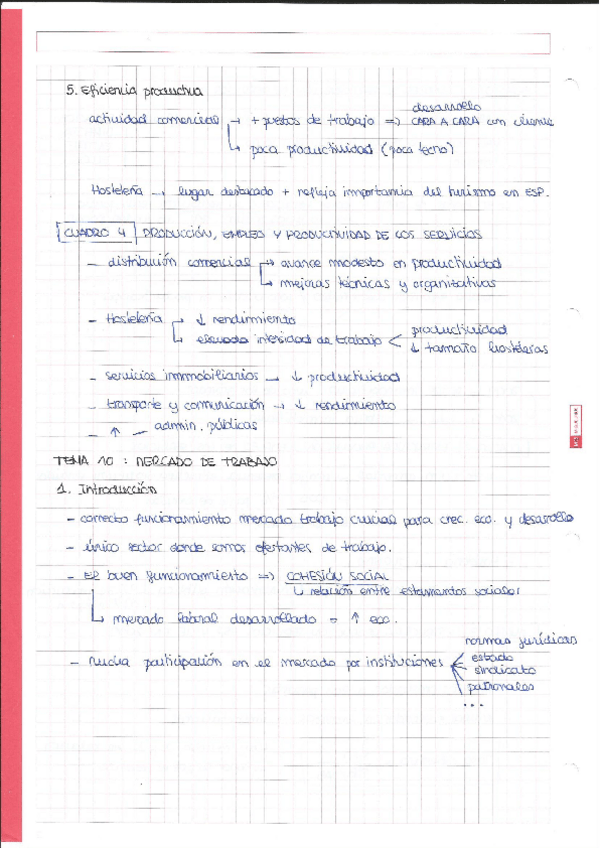 5. Eficiencia productiva
desarrollo
actividad comercial → + puestos de trabajo => CARA A CARA con cliente
↳ poca productividad (poca tecno)
Hostelería → lugar destacado + refleja importancia del turismo en ESP.
CUADRO 4 PRODUCCIÓN, EMPLEO Y PRODUCTIVIDAD DE LOS SERVICIOS
- distribución comercial → avance modesto en productividad
↳ mejoras técnicas y organitativas
- Hostelería → ↓ rendimiento
productividad
↳ elevada intensidad de trabajo <
↓ tamaño hosteleras
- servicios immobiliarios → ↓ productividad
- transporte y comunicación → ↓ rendimiento
- ↑ — admin. públicas
TEMA 10 : MERCADO DE TRABAJO
1. Introducción
- correcto funcionamiento mercado trabajo crucial para crec. eco. y desarrollo
- único sector donde somos ofertantes de trabajo.
- El buen funcionamiento => COHESIÓN SOCIAL
↳ relación entre estamentos sociales
↳ mercado laboral desarrollado = ↑ eco.
normas jurídicas
- Mucha participación en el mercado por instituciones
estado
sindicato
patronales
...